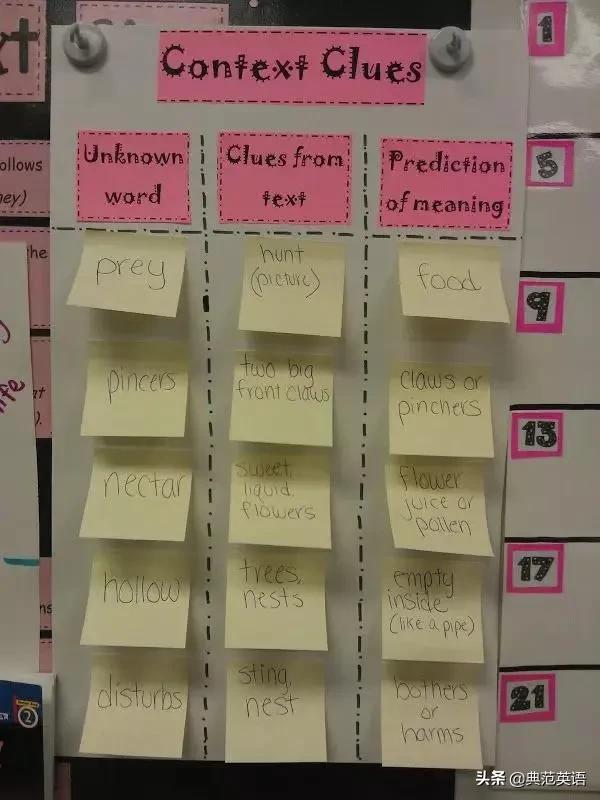 Context Clues
Unknown
word
Clues from
text
Prediction
of meaning
prey
hunt
(picture)
food
pincers
two big
front claws
claws or
pinchers
nectar
sweet,
liquid,
flowers
flower
juice or
pollen
hollow
trees,
nests
empty
inside
(like a pipe)
disturbs
sting,
nest
bothers
or
harms
1
5
9
13
17
21
ollows
ney)
the
2
头条 @典范英语